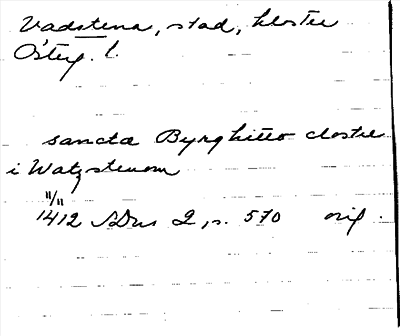 Vadstena, stad, kloster
Östg. l.
sancta Byrghitto closter
i Watzstenom
11/11
1412 SDns 2, s. 570 orig.